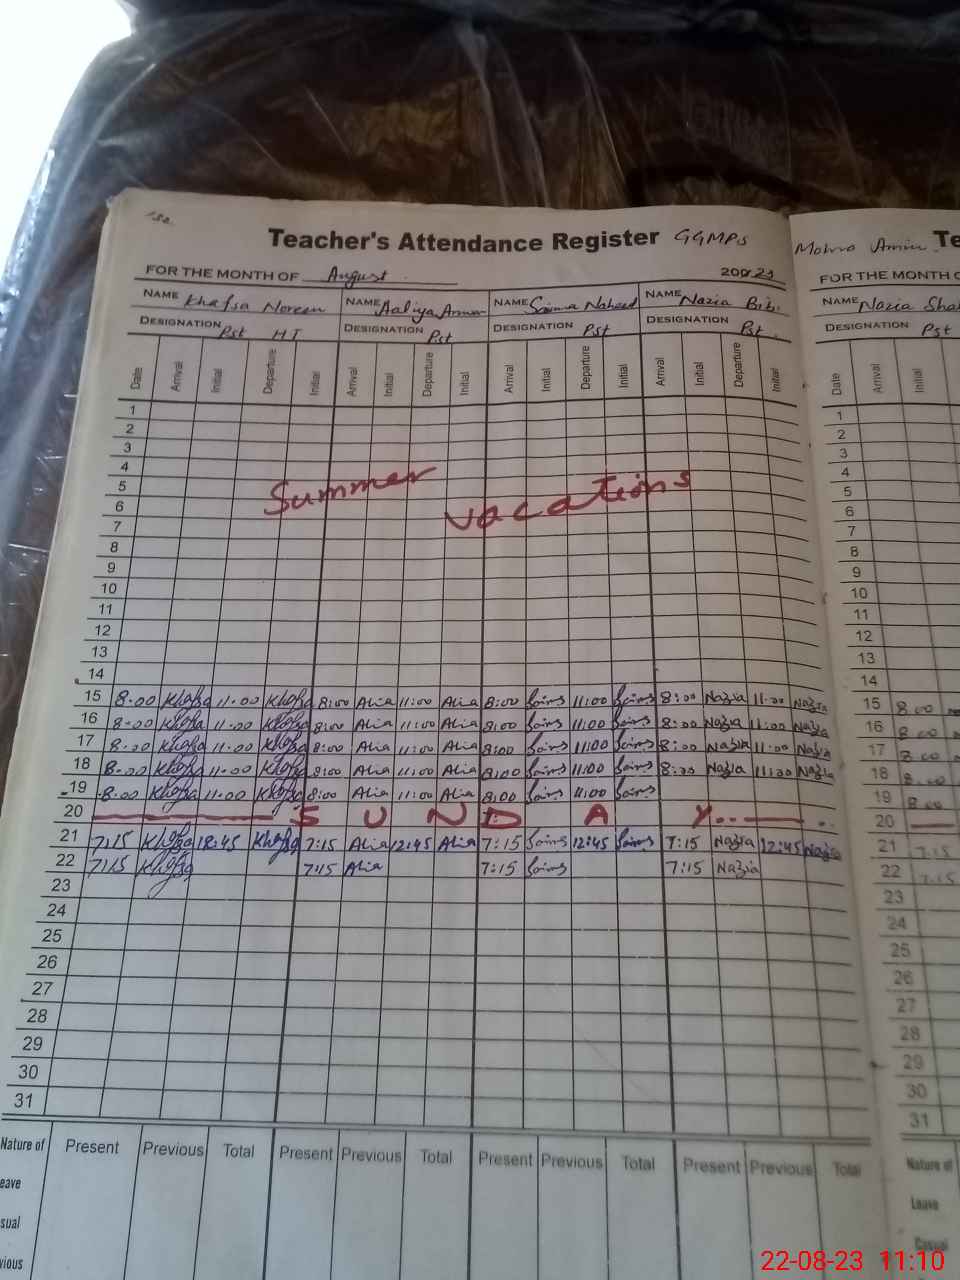 Teacher's Attendance Register GGMPS Mohra Amin Te
FOR THE MONTH OF August 2023 FOR THE MONTH O
NAME Khafsa Noreen NAME Aaliya Anwar NAME Saima Naheed NAME Nazia Bibi NAME Nazia Shah
DESIGNATION Pst HT DESIGNATION Pst DESIGNATION Pst DESIGNATION Pst. DESIGNATION Pst
Date Arrival Initial Departure Initial Arrival Initial Departure Initial Arrival Initial Departure Initial Arrival Initial Departure Initial Date Arrival Initial
1 1
2 2
3 3
4 4
Summer
5 5
vacations
6 6
7 7
8 8
9 9
10 10
11 11
12 12
13 13
14 14
15 8:00 Khafsa 11:00 Khafsa 8:00 Alia 11:00 Alia 8:00 Saima 11:00 Saima 8:00 Nazia 11:00 Nazia 15 8:00
16 8:00 Khafsa 11:00 Khafsa 8:00 Alia 11:00 Alia 8:00 Saima 11:00 Saima 8:00 Nazia 11:00 Nazia 16 8:00
17 8:00 Khafsa 11:00 Khafsa 8:00 Alia 11:00 Alia 8:00 Saima 11:00 Saima 8:00 Nazia 11:00 Nazia 17 8:00
18 8:00 Khafsa 11:00 Khafsa 8:00 Alia 11:00 Alia 8:00 Saima 11:00 Saima 8:00 Nazia 11:00 Nazia 18 8:00
19 8:00 Khafsa 11:00 Khafsa 8:00 Alia 11:00 Alia 8:00 Saima 11:00 Saima 19 8:00
20 S U N D A Y 20
21 7:15 Khafsa 12:45 Khafsa 7:15 Alia 12:45 Alia 7:15 Saima 12:45 Saima 7:15 Nazia 12:45 Nazia 21 7:15
22 7:15 Khafsa 7:15 Alia 7:15 Saima 7:15 Nazia 22 7:15
23 23
24 24
25 25
26 26
27 27
28 28
29 29
30 30
31 31
Nature of Present Previous Total Present Previous Total Present Previous Total Present Previous Total Nature of
eave Leave
sual Casual
vious
22-08-23 11:10